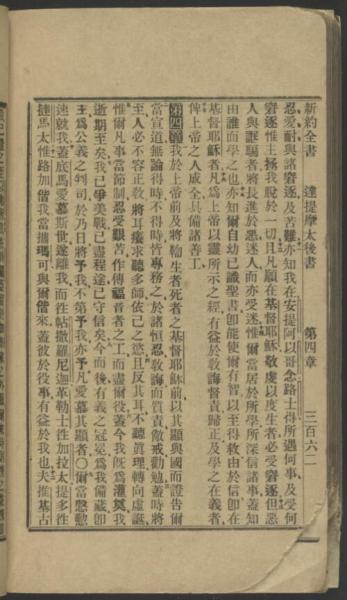 新約全書　達提摩太後書　第四章　三百六二
忍愛耐與諸窘逐及苦難亦知我在安提阿以哥念路士得所遇何事及受何
窘逐惟主拯我脫於一切且凡願在基督耶穌敬虔以度生者必受窘逐但惡
人與誆騙者將長進於惡迷人而亦受迷惟爾當居於所學所深信諸事蓋知
由誰而學之也亦知爾自幼已識聖書卽能使爾有智以至得救由於信卽在
基督耶穌者凡爲上帝以靈所示之經有益於敎誨督責歸正及學之在義者
俾上帝之人成全具備諸善工
第四章我於上帝前及將鞫生者死者之基督耶穌前以其顯與國而證告爾
當宣道無論得時不得時皆專務之於諸恒忍敎誨而責儆戒勸勉蓋時將
至人必不容正敎將耳癢求聽多師依己之慾且反其耳不聽眞理轉向虛誕
惟爾凡事當節制忍受艱苦作傳福音者之工而盡爾役蓋今我旣爲灌奠我
逝期至矣我已爭美戰已盡程途已守信矣今而後有義之冠冕爲我備藏卽
主爲公義之判司於乃日將予我不第予我亦予凡愛慕其顯者〇爾當慇懃
速就我蓋底馬愛慕斯世遂離我而徃帖撒羅尼迦革勒士徃加拉太提多徃
撻馬太惟路加偕我當攜瑪可與爾偕來蓋彼於役事有益於我也夫推基古